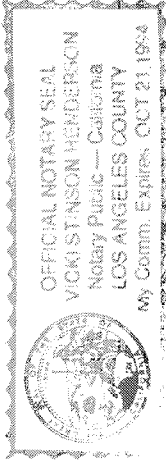 OFFICIAL NOTARY SEAL
VICKI STINSON HENDERSON
Notary Public — California
LOS ANGELES COUNTY
My Comm. Expires OCT 21, 1994